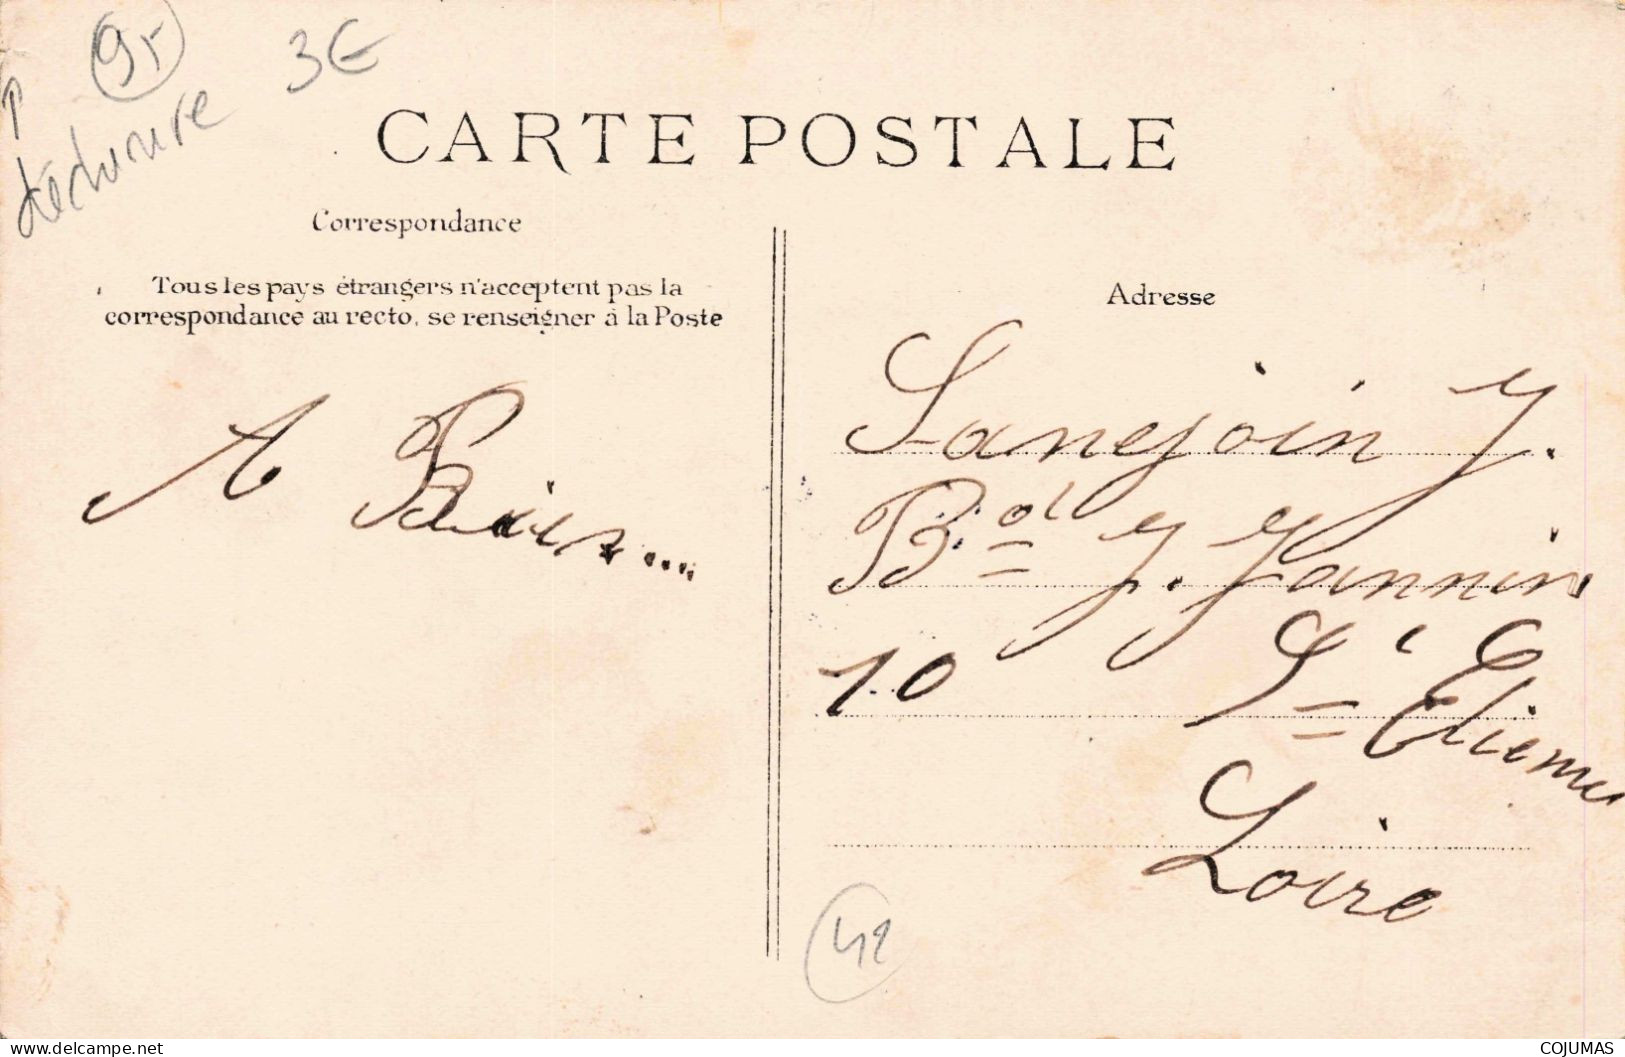 95
3€
déchirure
CARTE POSTALE
Correspondance
Tous les pays étrangers n'acceptent pas la
correspondance au recto, se renseigner à la Poste
Adresse
Sanejoin J.
Bd J. Jannin
10 St Etienne
Loire
42
www.delcampe.net
COJUMAS